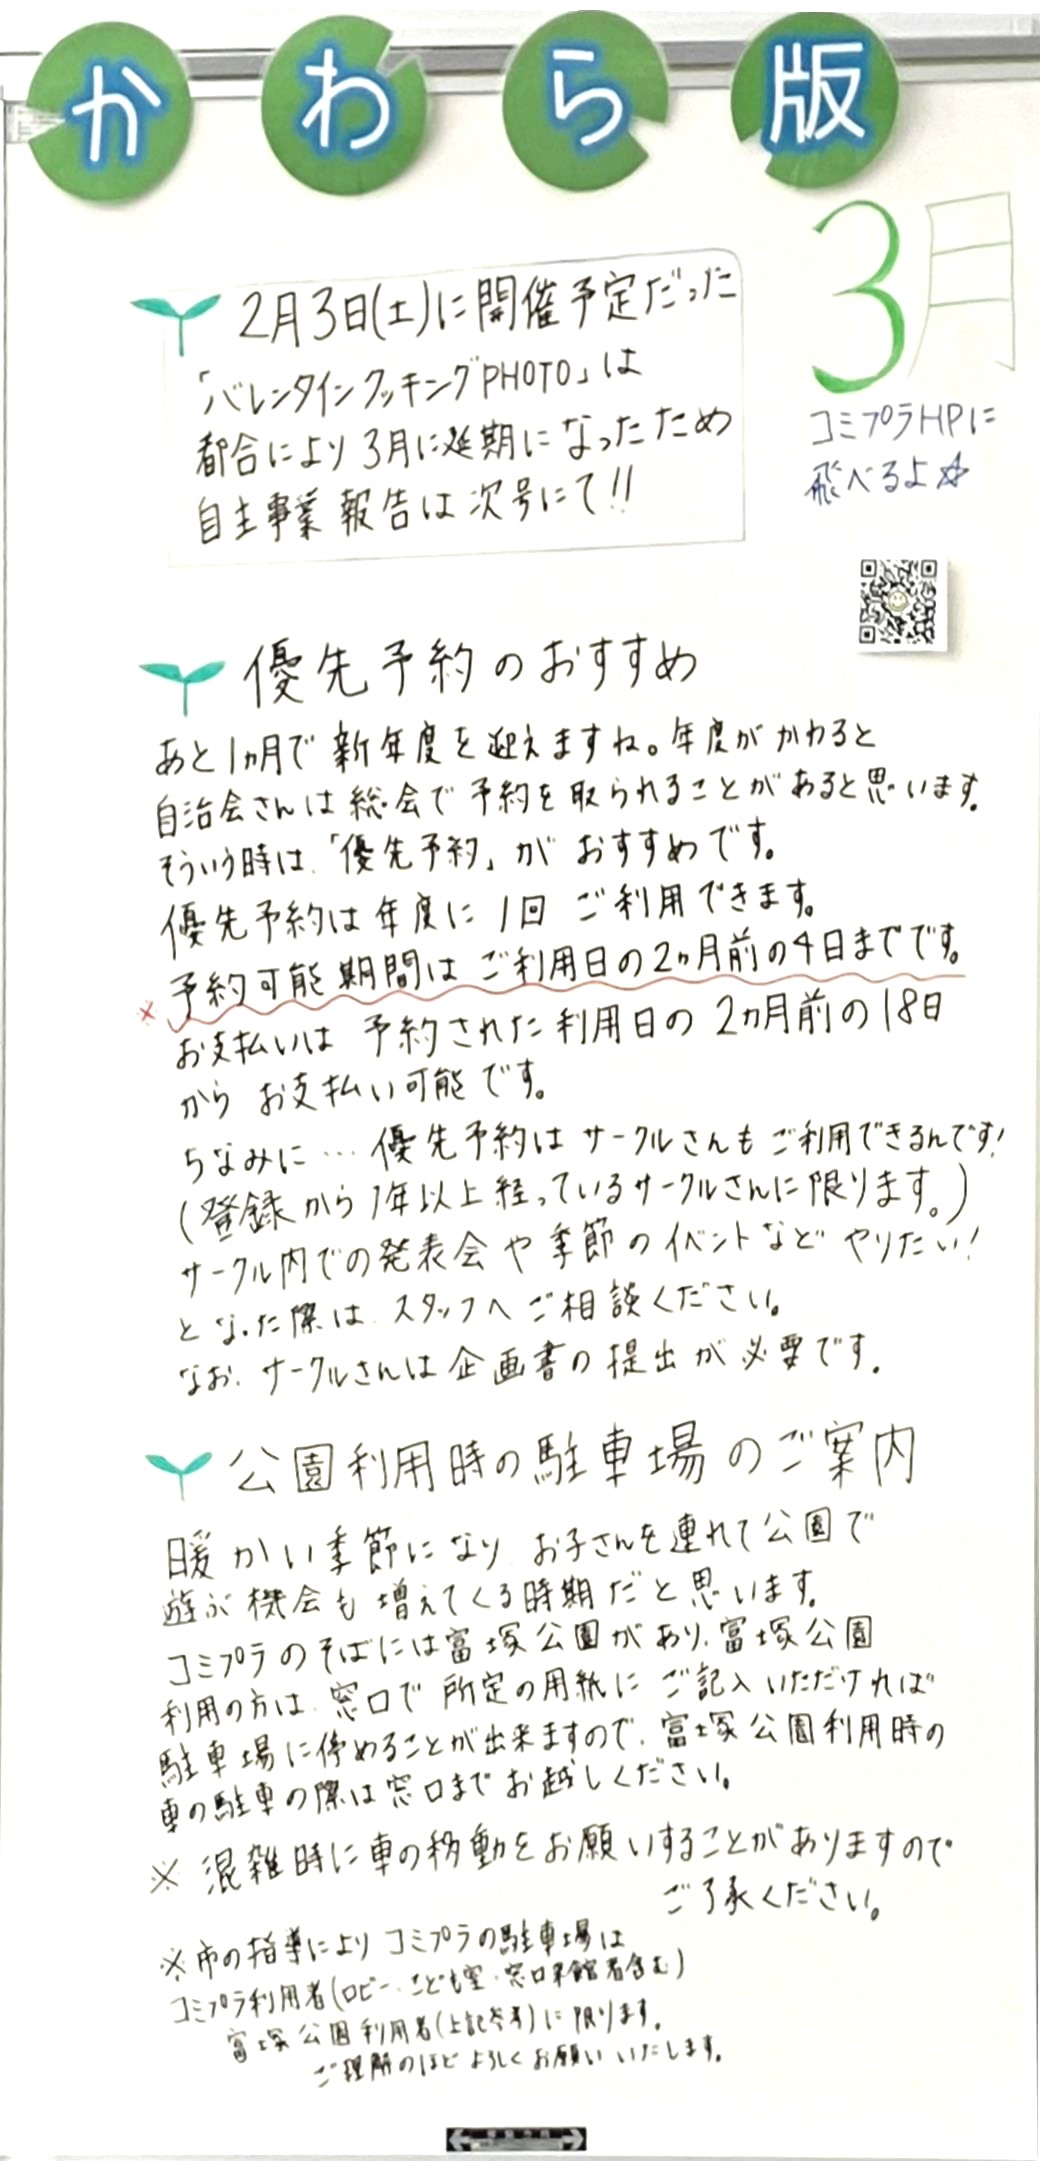 かわら版
3月
コミプラHPに
飛べるよ☆
2月3日(土)に開催予定だった
「バレンタインクッキングPHOTO」は
都合により3月に延期になったため
自主事業報告は次号にて!!
優先予約のおすすめ
あと1ヵ月で新年度を迎えますね。年度がかわると
自治会さんは総会で予約を取られることがあると思います。
そういう時は、「優先予約」がおすすめです。
優先予約は年度に1回ご利用できます。
※予約可能期間はご利用日の2ヵ月前の4日までです。
お支払いは予約された利用日の2ヵ月前の18日
からお支払い可能です。
ちなみに…優先予約はサークルさんもご利用できるんです!
(登録から1年以上経っているサークルさんに限ります。)
サークル内での発表会や季節のイベントなどやりたい!
となった際は、スタッフへご相談ください。
なお、サークルさんは企画書の提出が必要です。
公園利用時の駐車場のご案内
暖かい季節になり、お子さんを連れて公園で
遊ぶ機会も増えてくる時期だと思います。
コミプラのそばには富塚公園があり、富塚公園
利用の方は、窓口で所定の用紙にご記入いただければ
駐車場に停めることが出来ますので、富塚公園利用時の
車の駐車の際は窓口までお越しください。
※混雑時に車の移動をお願いすることがありますので
ご了承ください。
※市の指導によりコミプラの駐車場は
コミプラ利用者(ロビー・こども室・窓口来館者含む)
富塚公園利用者(上記参考)に限ります。
ご理解のほどよろしくお願いいたします。